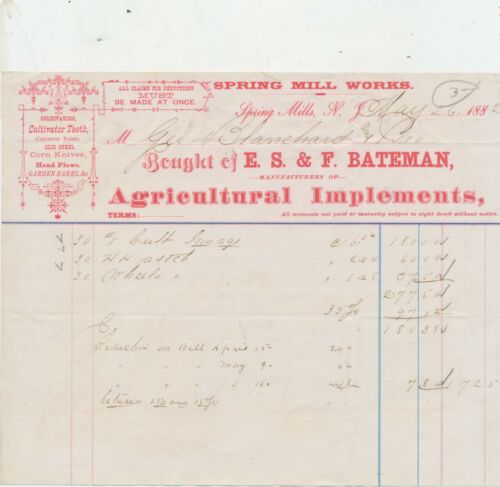 ALL CLAIMS FOR DEDUCTIONS
MUST
BE MADE AT ONCE.
SPRING MILL WORKS.
3
Spring Mills, N. J. May 26 1882
CULTIVATORS,
Cultivator Teeth,
Cultivator Points,
SLID STEEL
Corn Knives,
Hand Plows,
GARDEN RAKES, &c
M Geo Blanchard & Bro
Bought of E. S. & F. BATEMAN,
MANUFACTURERS OF
Agricultural Implements,
TERMS:
All accounts not paid at maturity subject to sight draft without notice.
30 Cult 6.00 180 00
30 H H 2.00 60 00
30 Wheels " 1.25 37 50
277 50
35% 97 12
180 38
Cr
Reduction on Bill April 15
" " " May 9
" " " 16 7 8
between and 35%